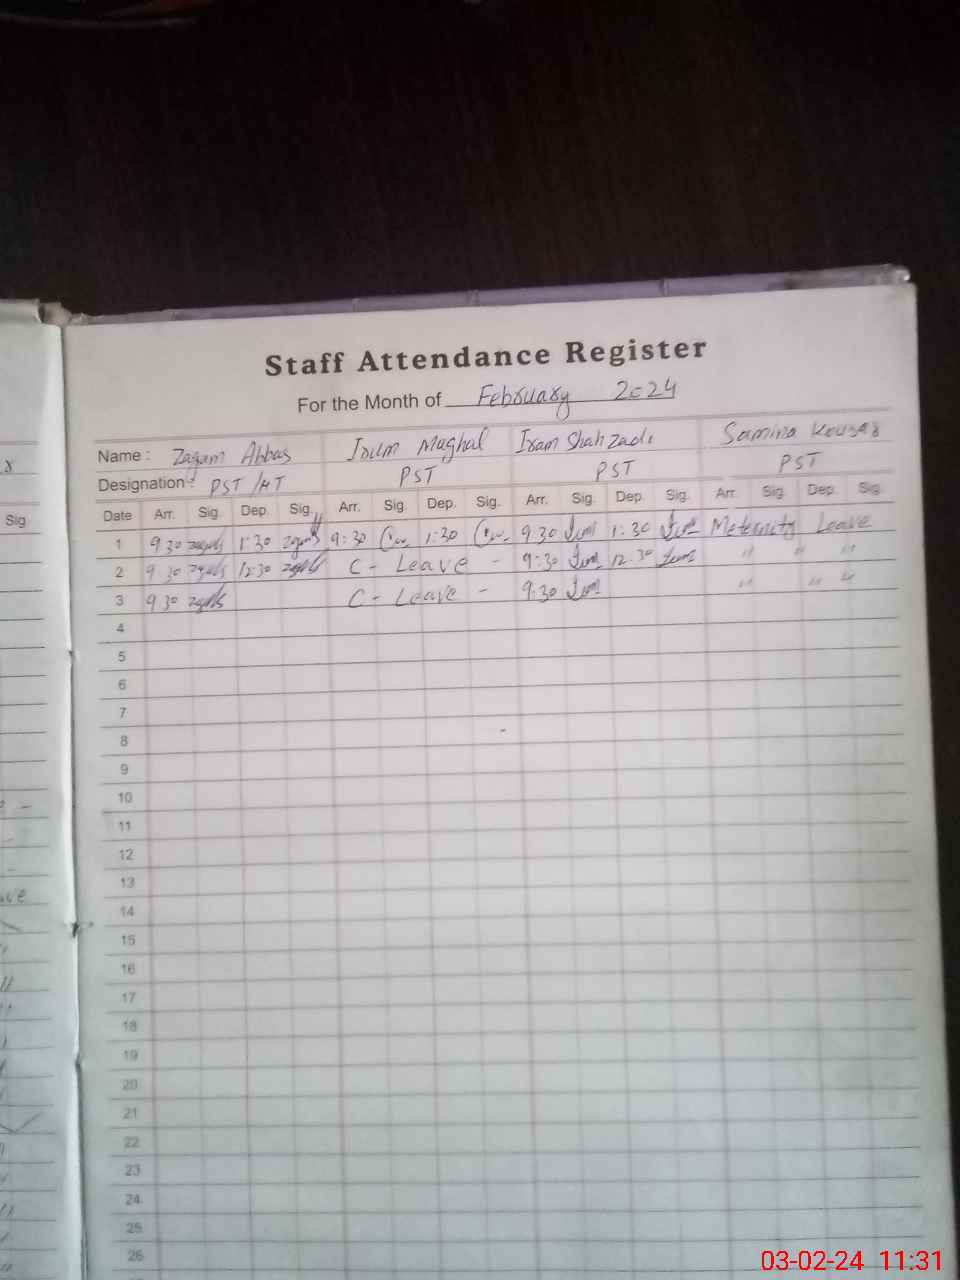 Staff Attendance Register
For the Month of February 2024
Name : Zagam Abbas Irum Mughal Iram Shahzadi Samina Kousar
Designation : PST/HT PST PST PST
Date Arr. Sig. Dep. Sig. Arr. Sig. Dep. Sig. Arr. Sig. Dep. Sig. Arr. Sig. Dep. Sig.
1 9 30 1:30 9:30 1:30 9 30 1:30 Meternity Leave
2 9 30 12:30 C - Leave - 9:30 12:30 " " "
3 9 30 C - Leave - 9:30 " " "
4
5
6
7
8
9
10
11
12
13
14
15
16
17
18
19
20
21
22
23
24
25
26
Sig.
ave
03-02-24 11:31